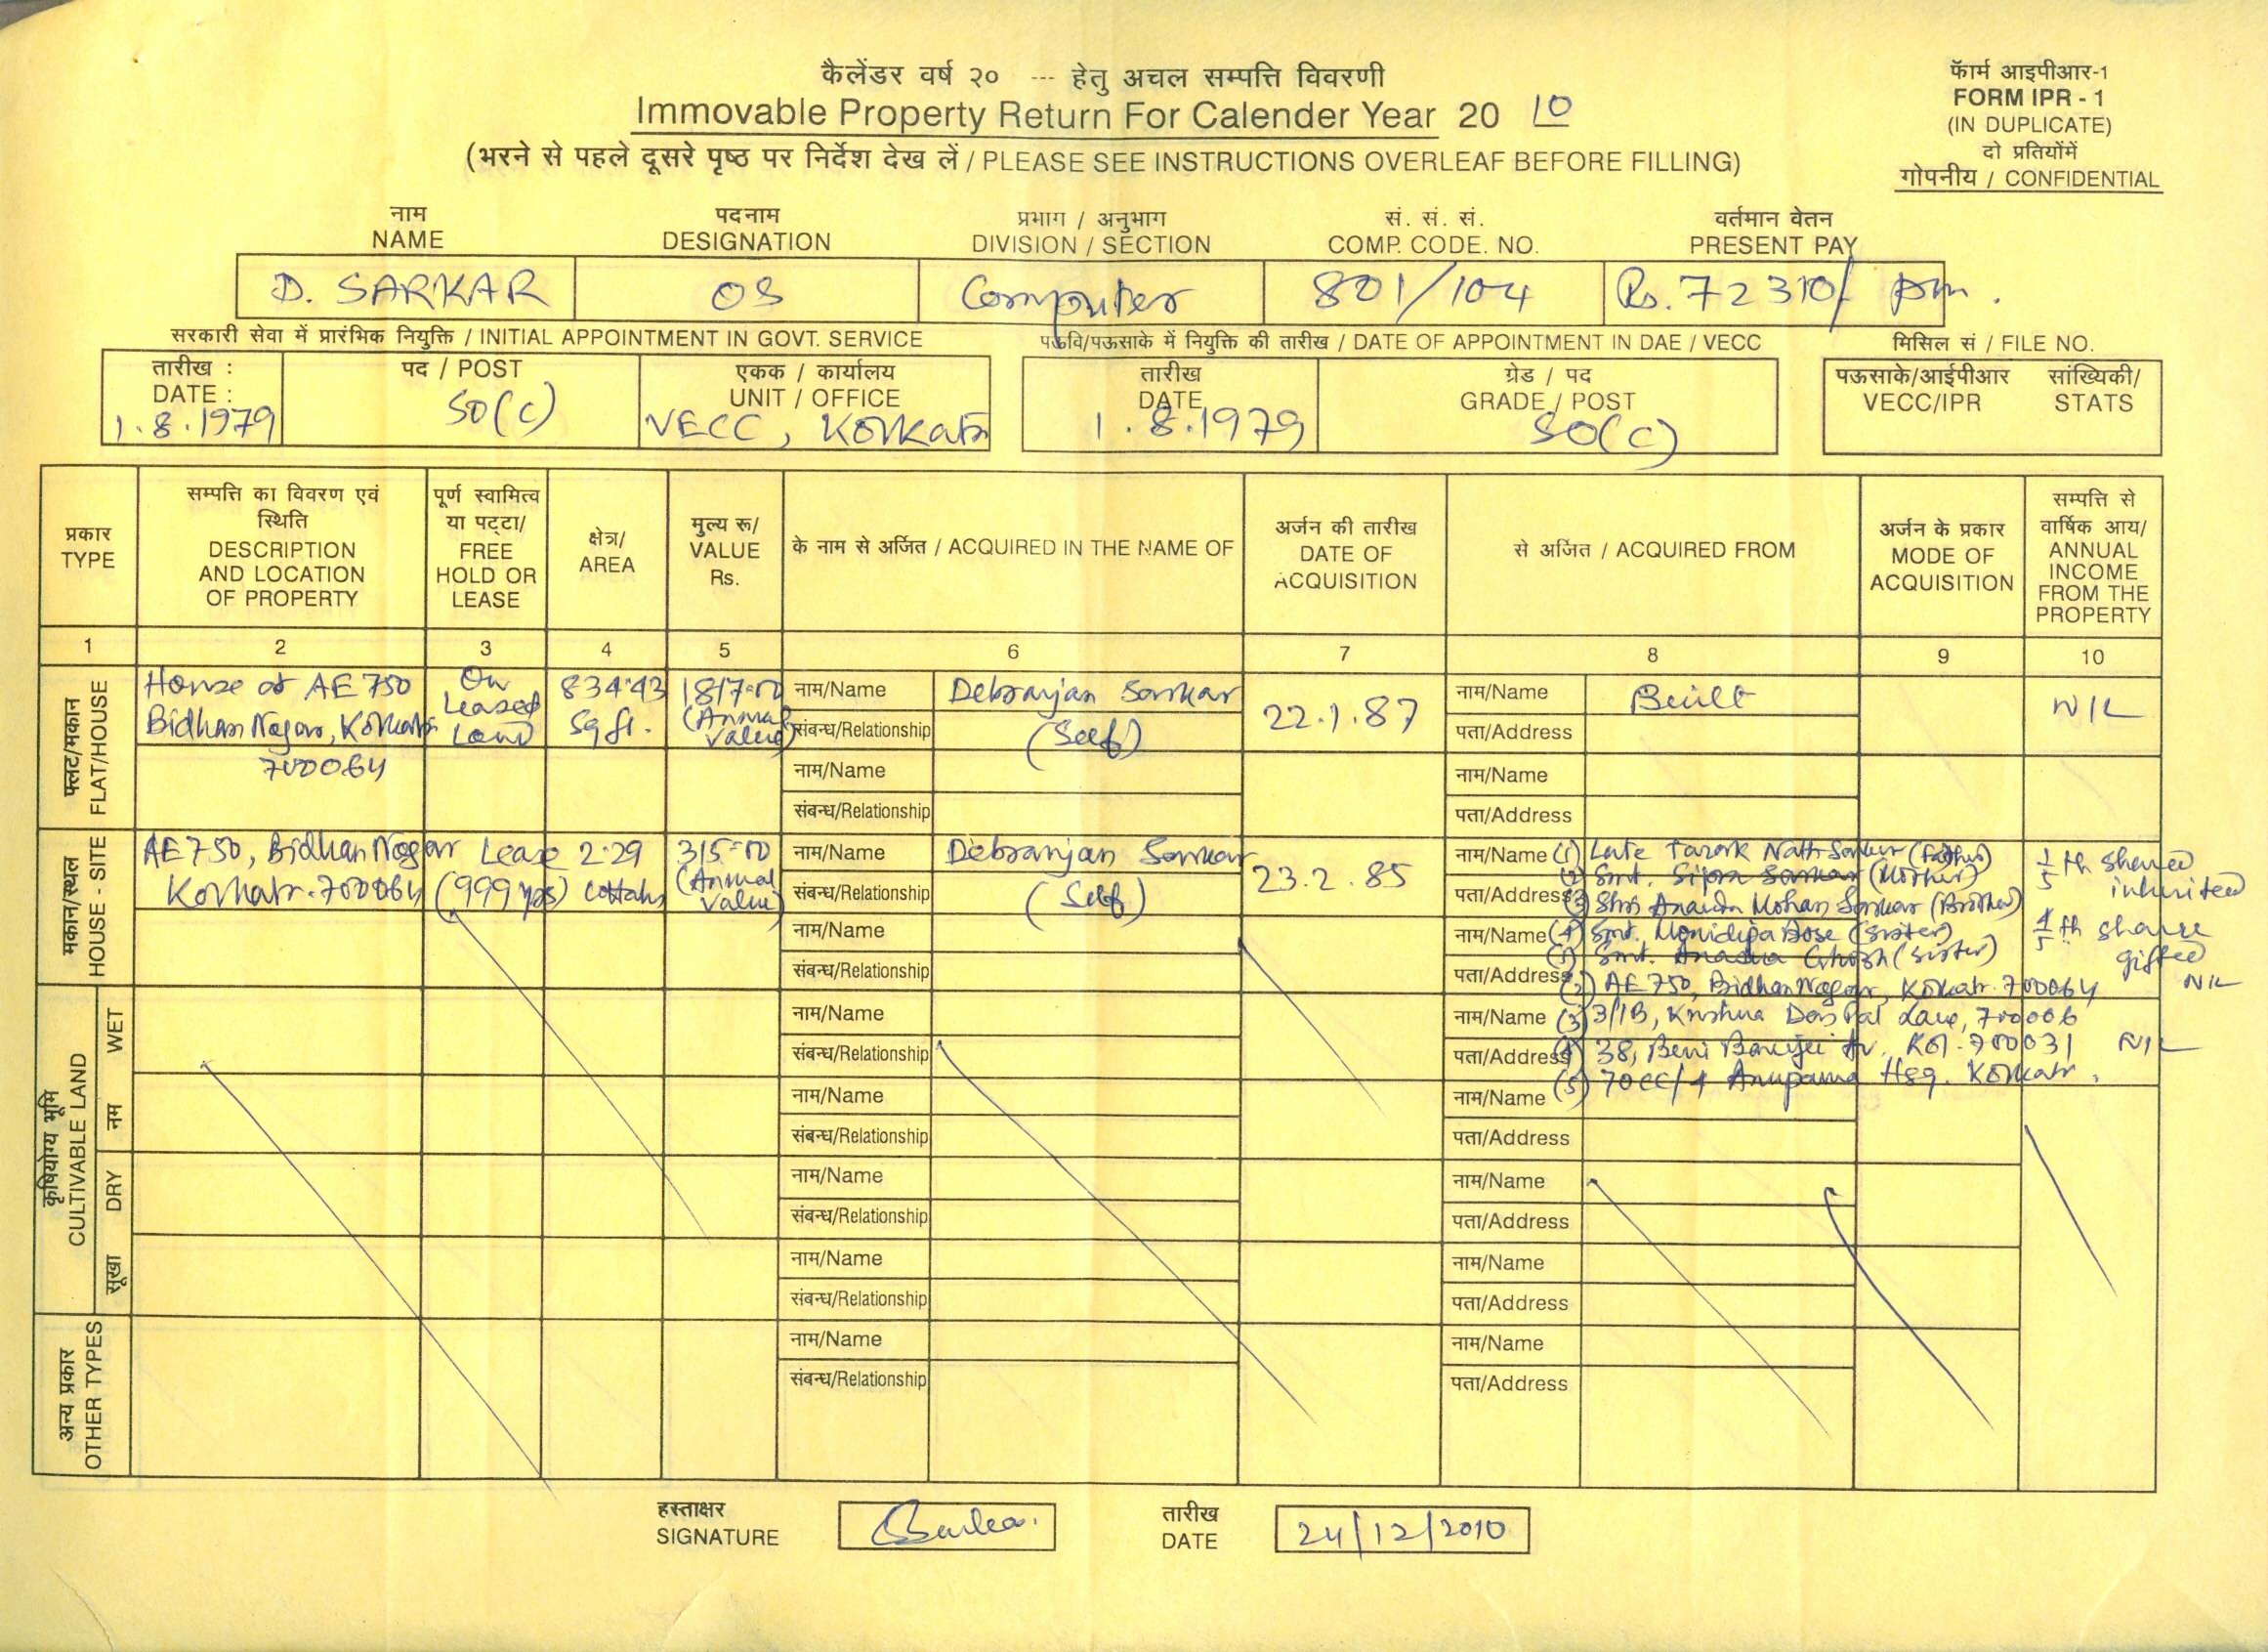 कैलेंडर वर्ष २० --- हेतु अचल सम्पत्ति विवरणी
Immovable Property Return For Calender Year 20 10
(भरने से पहले दूसरे पृष्ठ पर निर्देश देख लें / PLEASE SEE INSTRUCTIONS OVERLEAF BEFORE FILLING)
फॅार्म आइपीआर-1
FORM IPR - 1
(IN DUPLICATE)
दो प्रतियोंमें
गोपनीय / CONFIDENTIAL
नाम पदनाम प्रभाग / अनुभाग सं. सं. सं. वर्तमान वेतन
NAME DESIGNATION DIVISION / SECTION COMP. CODE. NO. PRESENT PAY
D. SARKAR OS Computer 801/104 Rs. 72310/ pm.
सरकारी सेवा में प्रारंभिक नियुक्ति / INITIAL APPOINTMENT IN GOVT. SERVICE
पऊवि/पऊसाके में नियुक्ति की तारीख / DATE OF APPOINTMENT IN DAE / VECC
मिसिल सं / FILE NO.
तारीख : पद / POST एकक / कार्यालय तारीख ग्रेड / पद पऊसाके/आईपीआर सांख्यिकी/
DATE : UNIT / OFFICE DATE GRADE / POST VECC/IPR STATS
1.8.1979 SO(C) VECC, Kolkata 1.8.1979 SO(C)
प्रकार
TYPE
सम्पत्ति का विवरण एवं
स्थिति
DESCRIPTION
AND LOCATION
OF PROPERTY
पूर्ण स्वामित्व
या पट्टा/
FREE
HOLD OR
LEASE
क्षेत्र/
AREA
मुल्य रू/
VALUE
Rs.
के नाम से अर्जित / ACQUIRED IN THE NAME OF
अर्जन की तारीख
DATE OF
ACQUISITION
से अर्जित / ACQUIRED FROM
अर्जन के प्रकार
MODE OF
ACQUISITION
सम्पत्ति से
वार्षिक आय/
ANNUAL
INCOME
FROM THE
PROPERTY
1 2 3 4 5 6 7 8 9 10
फ्लट/मकान
FLAT/HOUSE
House at AE 750
Bidhan Nagar, Kolkata
700064
On
Leased
Land
834.43
Sq ft.
1817=00
(Annual
Value)
नाम/Name Debranjan Sarkar
संबन्ध/Relationship (Self)
नाम/Name
संबन्ध/Relationship
22.1.87
नाम/Name Built
पता/Address
नाम/Name
पता/Address
NIL
मकान/स्थल
HOUSE - SITE
AE 750, Bidhan Nagar
Kolkata. 700064
Lease
(999 yrs)
2.29
Cottahs
315=00
(Annual
Value)
नाम/Name Debranjan Sarkar
संबन्ध/Relationship (Self)
नाम/Name
संबन्ध/Relationship
23.2.85
नाम/Name (1) Late Tarak Nath Sarkar (Father)
(2) Smt. Sipra Sarkar (Mother)
पता/Address (3) Shri Ananda Mohan Sarkar (Brother)
नाम/Name (4) Smt. Monidipa Bose (Sister)
(5) Smt. Ghosh (Sister)
पता/Address (2) AE 750, Bidhan Nagar, Kolkata. 700064
नाम/Name (3) 3/1B, Krishna Das Pal Lane, 700006
पता/Address (4) 38, Beni Banerjee Av. Kol-700031
(5) 70CC/4 Anupama Hsg. Kolkata.
1/5 th shared
inherited
4/5 th share
gifted
NIL
NIL
कृषियोग्य भूमि
CULTIVABLE LAND
नम WET
सूखा DRY
नाम/Name
संबन्ध/Relationship
नाम/Name
संबन्ध/Relationship
नाम/Name
संबन्ध/Relationship
नाम/Name
संबन्ध/Relationship
नाम/Name
पता/Address
नाम/Name
पता/Address
नाम/Name
पता/Address
अन्य प्रकार
OTHER TYPES
नाम/Name
संबन्ध/Relationship
नाम/Name
पता/Address
हस्ताक्षर
SIGNATURE
तारीख
DATE
24/12/2010